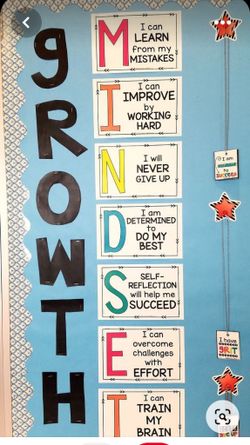 gROWTH
M
I can
LEARN
from my
MISTAKES
I
I can
IMPROVE
by
WORKING
HARD
N
I will
NEVER
GIVE UP
D
I am
DETERMINED
to
DO MY
BEST
S
SELF-
REFLECTION
will help me
SUCCEED
E
I can
overcome
challenges
with
EFFORT
T
I can
TRAIN
MY
BRAIN
I am
to
I have
grit